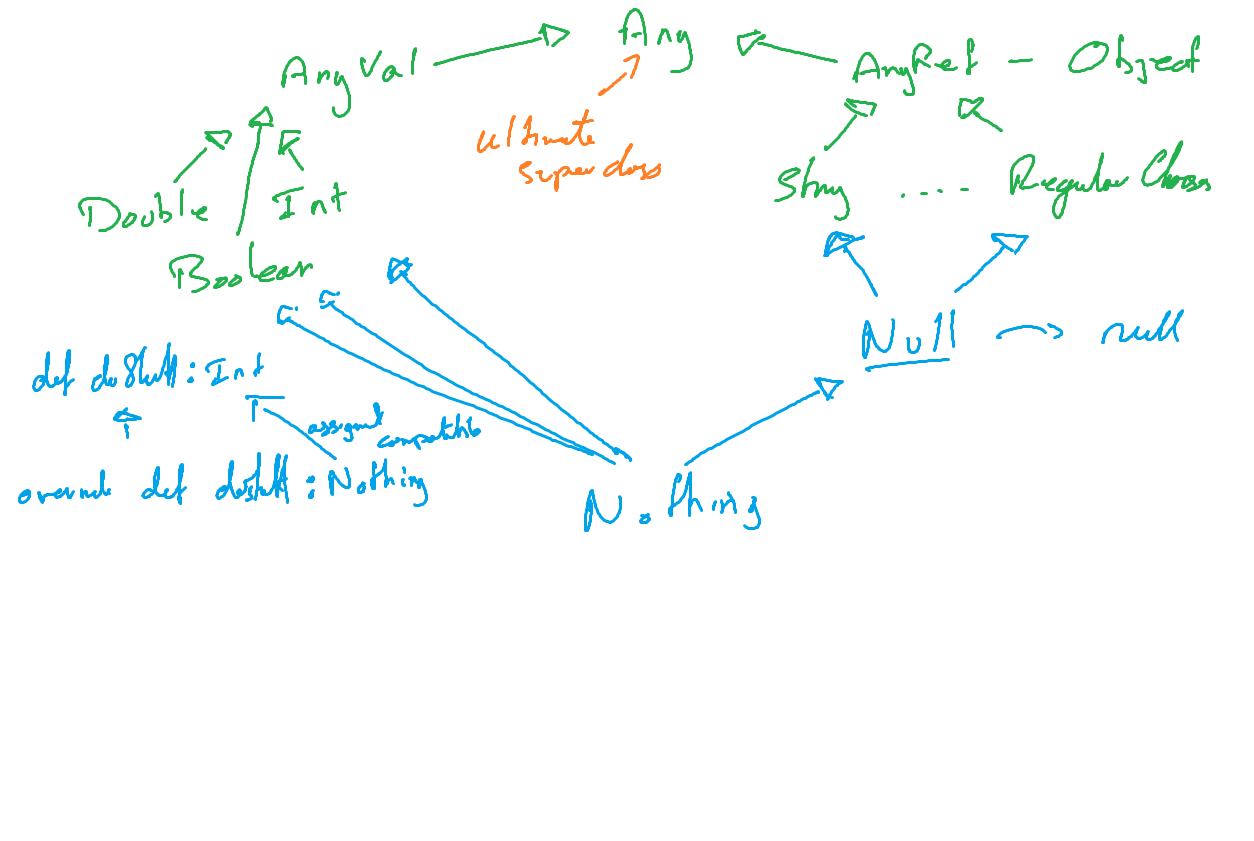 Any
AnyVal
AnyRef - Object
ultimate
superclass
Double
Int
Boolean
String .... Regular Classes
Null → null
def doStuff : Int
assignment
compatible
override def doStuff : Nothing
Nothing